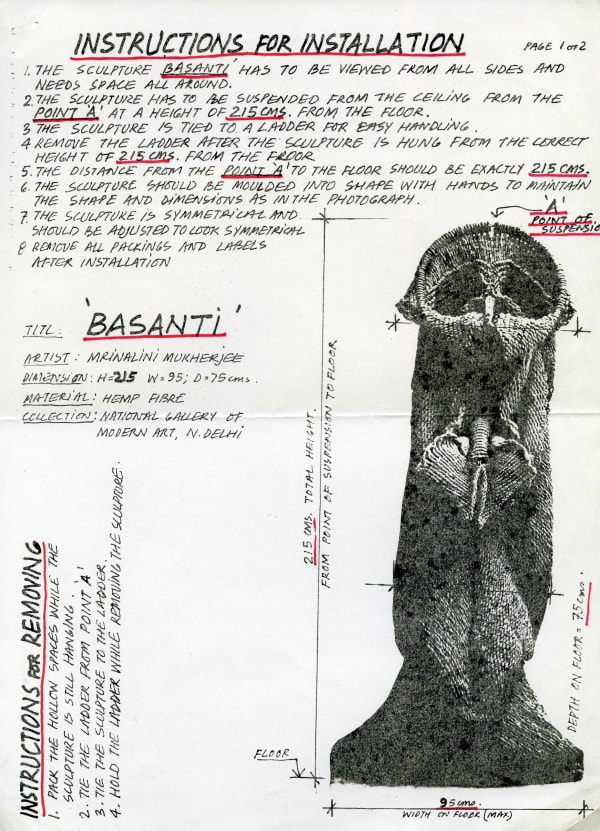 INSTRUCTIONS FOR INSTALLATION
PAGE 1 OF 2
1. THE SCULPTURE 'BASANTI' HAS TO BE VIEWED FROM ALL SIDES AND
NEEDS SPACE ALL AROUND.
2. THE SCULPTURE HAS TO BE SUSPENDED FROM THE CEILING FROM THE
POINT 'A' AT A HEIGHT OF 215 CMS. FROM THE FLOOR.
3 THE SCULPTURE IS TIED TO A LADDER FOR EASY HANDLING.
4 REMOVE THE LADDER AFTER THE SCULPTURE IS HUNG FROM THE CORRECT
HEIGHT OF 215 CMS. FROM THE FLOOR
5. THE DISTANCE FROM THE POINT 'A' TO THE FLOOR SHOULD BE EXACTLY 215 CMS.
6. THE SCULPTURE SHOULD BE MOULDED INTO SHAPE WITH HANDS TO MAINTAIN
THE SHAPE AND DIMENSIONS AS IN THE PHOTOGRAPH.
7. THE SCULPTURE IS SYMMETRICAL AND
SHOULD BE ADJUSTED TO LOOK SYMMETRICAL
8 REMOVE ALL PACKINGS AND LABELS
AFTER INSTALLATION
'A'
POINT OF
SUSPENSIO
TITL: 'BASANTI'
ARTIST: MRINALINI MUKHERJEE
DIMENSION: H=215 W=95; D=75cms.
MATERIAL: HEMP FIBRE
COLLECTION: NATIONAL GALLERY OF
MODERN ART, N. DELHI
215 CMS. TOTAL HEIGHT.
FROM POINT OF SUSPENSION TO FLOOR
INSTRUCTIONS FOR REMOVING
1. PACK THE HOLLOW SPACES WHILE THE
SCULPTURE IS STILL HANGING.
2. TIE THE LADDER FROM POINT 'A'
3. TIE THE SCULPTURE TO THE LADDER.
4. HOLD THE LADDER WHILE REMOVING THE SCULPTURE.
DEPTH ON FLOOR = 75 cms.
FLOOR
95 cms.
WIDTH ON FLOOR (MAX)